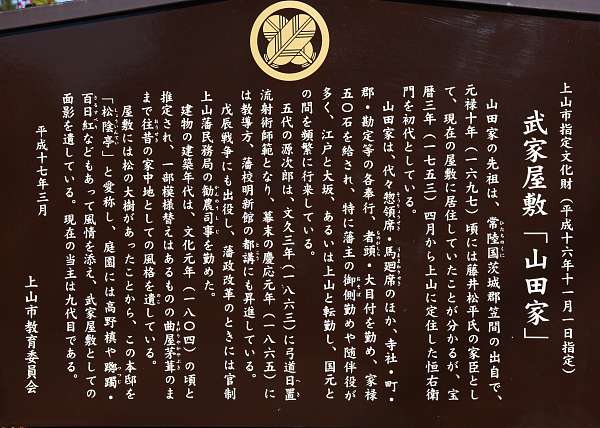 上山市指定文化財（平成十六年十一月一日指定）
武家屋敷「山田家」
山田家の先祖は、常陸国茨城郡笠間の出自で、
元禄十年（一六九七）頃には藤井松平氏の家臣とし
て、現在の屋敷に居住していたことが分かるが、宝
暦三年（一七五三）四月から上山に定住した恒右衛
門を初代としている。
山田家は、代々惣領席・馬廻席のほか、寺社・町・
郡・勘定等の各奉行、者頭・大目付を勤め、家禄
五〇石を給され、特に藩主の御側勤めや随伴役が
多く、江戸と大坂、あるいは上山と転勤し、国元と
の間を頻繁に行来している。
五代の源次郎は、文久三年（一八六三）に弓道日置
流射術師範となり、幕末の慶応元年（一八六五）に
は教導方、藩校明新館の都講にも昇進している。
戊辰戦争にも出役し、藩政改革のときには官制
上山藩民務局の勧農司事を勤めた。
建物の建築年代は、文化元年（一八〇四）の頃と
推定され、一部模様替えはあるものの曲屋茅葺のま
まで往昔の家中地としての風格を遺している。
屋敷には松の大樹があったことから、この本邸を
「松陰亭」と愛称し、庭園には高野槙や躑躅・
百日紅などもあって風情を添え、武家屋敷としての
面影を遺している。現在の当主は九代目である。
平成十七年三月
上山市教育委員会